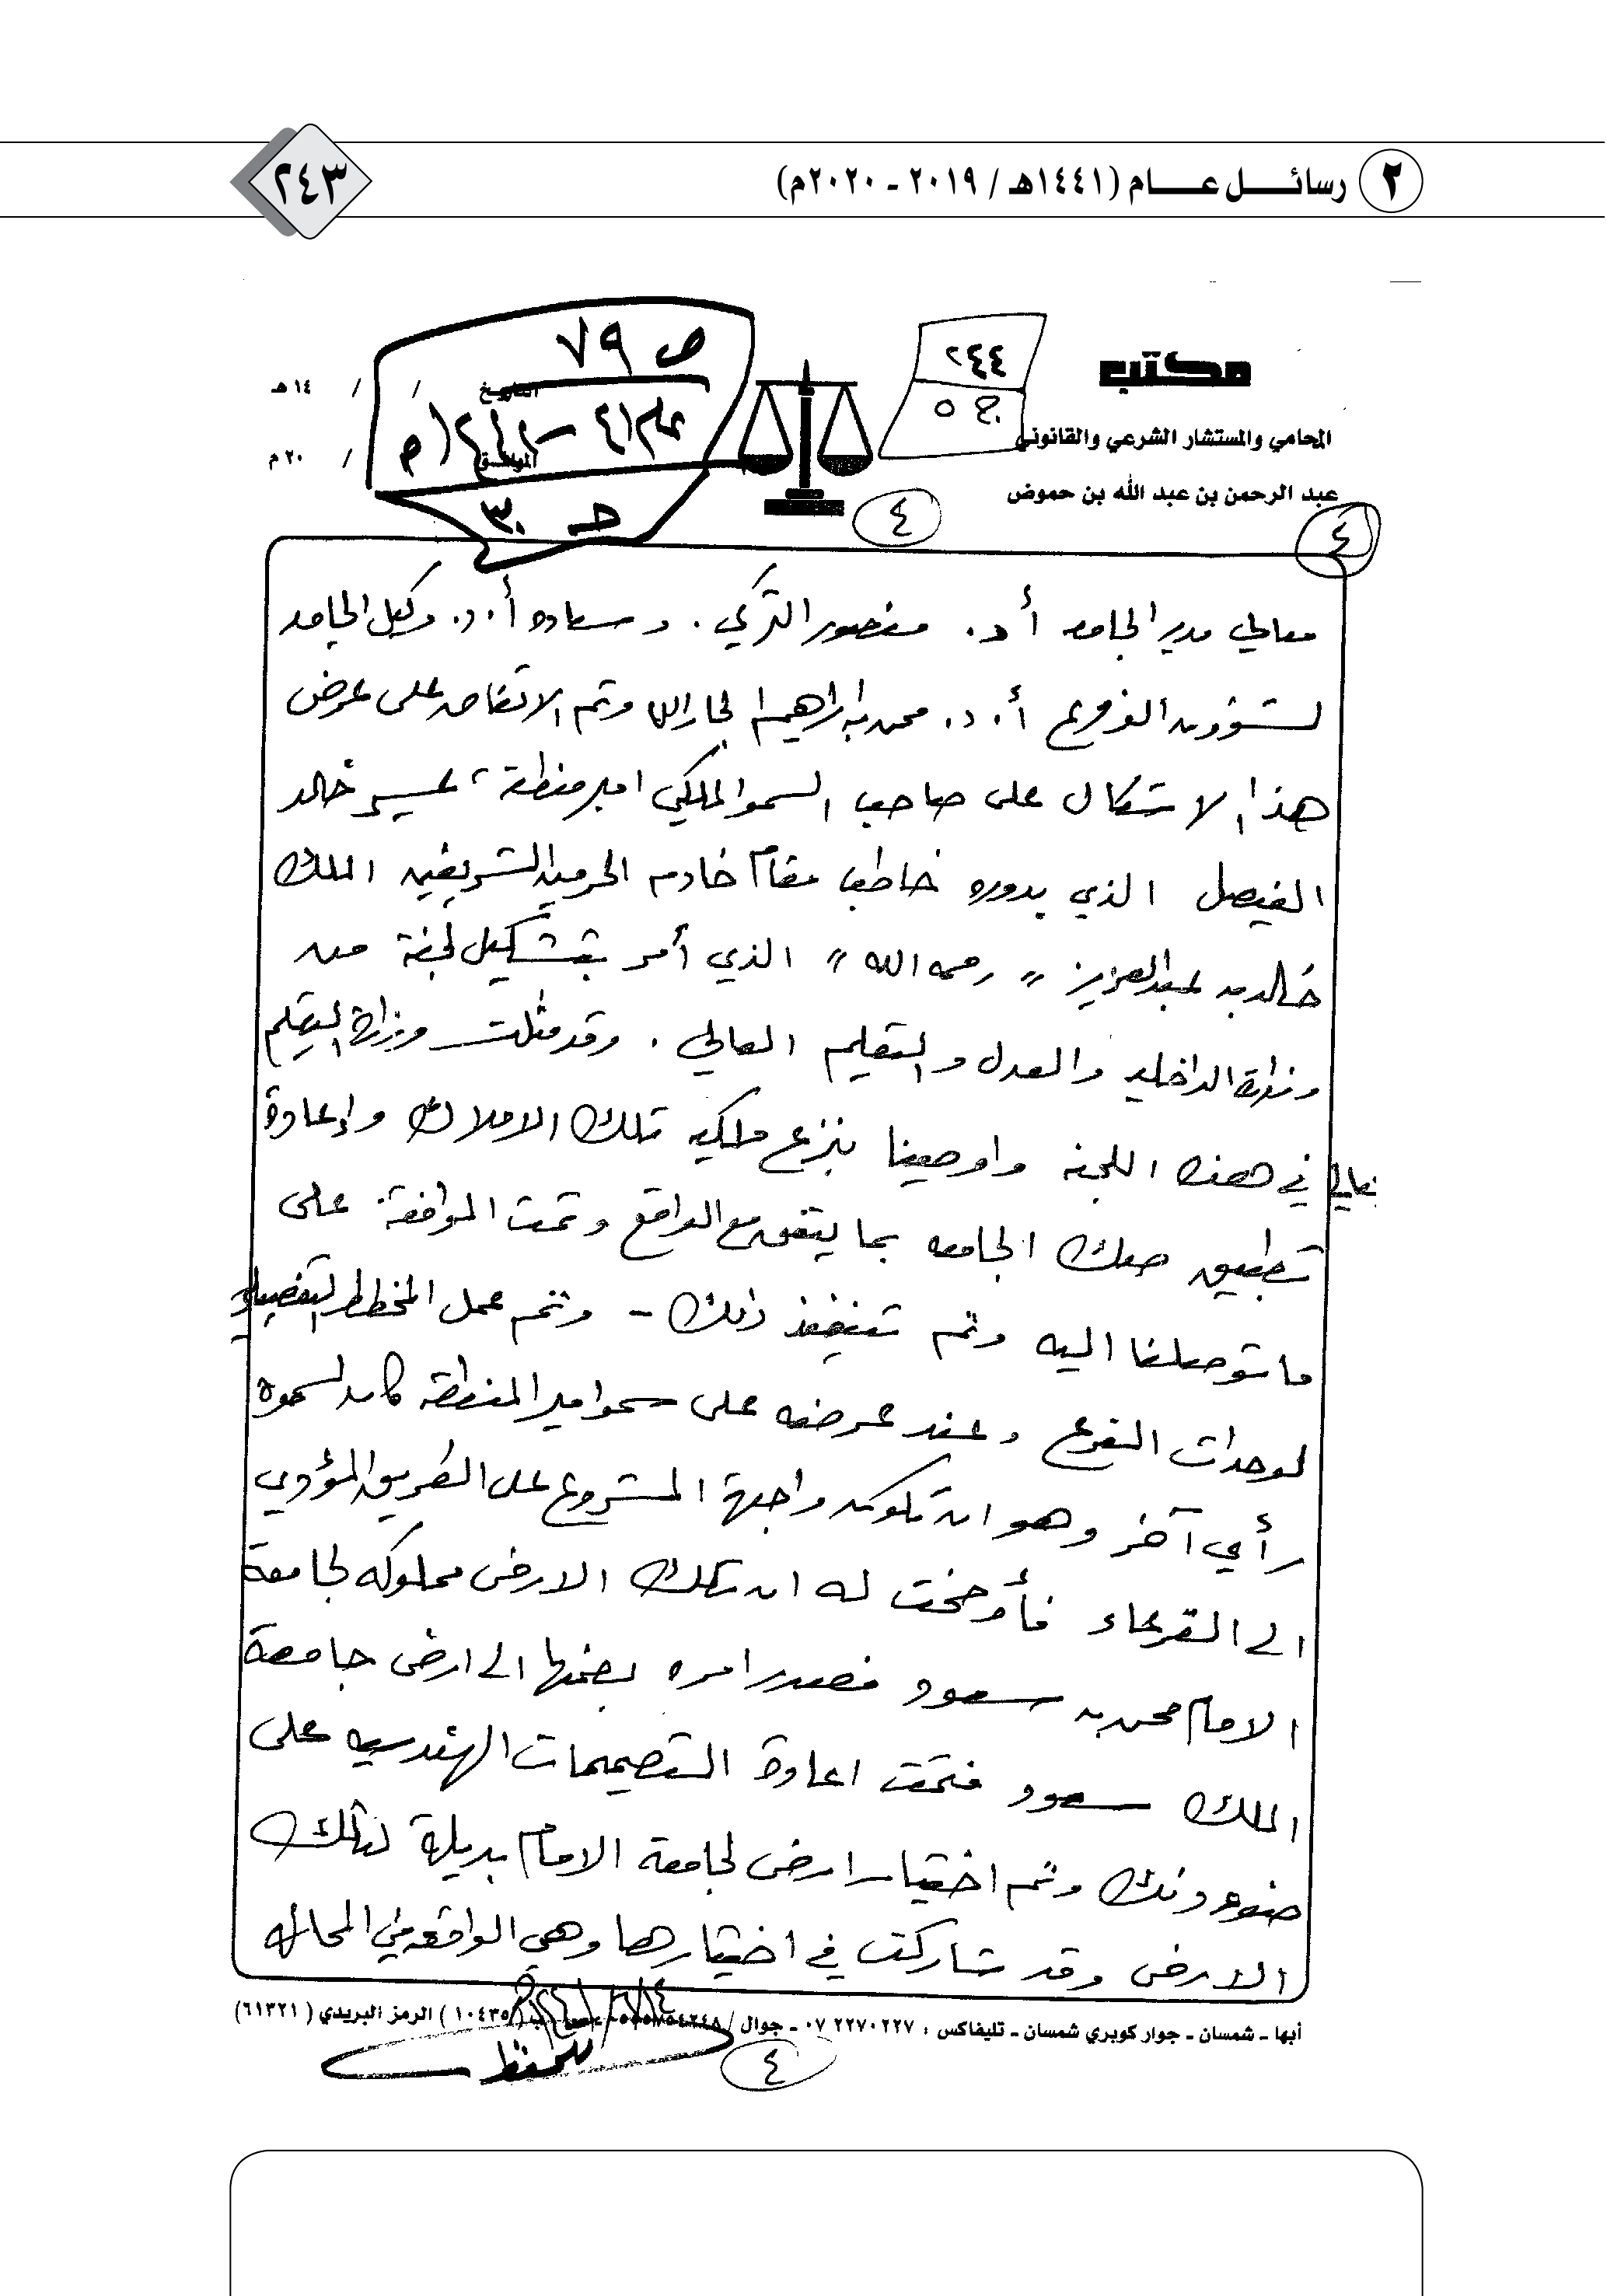 ٢ رسائل عام (١٤٤١هـ / ٢٠١٩ ـ ٢٠٢٠م)
٢٤٣
مكتب
المحامي والمستشار الشرعي والقانوني
عبد الرحمن بن عبد الله بن حموض
٢٤٤
ج ٥
ص ٧٩
التاريخ / / ١٤هـ
الموافق / ٢٠م
٤
٤
معالي مدير الجامعه أ.د. منصور التركي . وسعاده أ.د. وكيل الجامعه
لشؤون الفروع أ.د. محمد بن ابراهيم الجار الله وتم الاتفاق على عرض
هذا الاشكال على صاحب السمو الملكي امير منطقة عسير خالد
الفيصل الذي بدوره خاطب مقام خادم الحرمين الشريفين الملك
خالد بن عبدالعزيز " رحمه الله " الذي أمر بتشكيل لجنة من
وزارة الداخليه والعدل والتعليم العالي . وقد مثلت وزارة التعليم
العالي في هذه اللجنه واوصينا بنزع ملكيه تلك الاملاك وإعادة
تطبيق صك الجامعه بما يتفق مع الواقع وتمت الموافقة على
ما توصلنا اليه وتم تنفيذ ذلك - وتم عمل المخطط التفصيلي
لوحدات الفرع وعند عرضه على سمو امير المنطقه كان لسموه
رأي آخر وهو ان تكون واجهة المشروع على الطريق المؤدي
الى القرعاء فأوضحت له ان تلك الارض مملوكه لجامعة
الامام محمد بن سعود فصدر امره بضمها الى ارض جامعة
الملك سعود فتمت اعادة التصميمات الهندسيه على
ضوء ذلك وتم اختيار ارض لجامعة الامام بديلة لتلك
الارض وقد شاركت في اختيارها وهي الواقعه في المحاله
أبها ـ شمسان ـ جوار كوبري شمسان ـ تليفاكس : ٢٢٧٠٢٢٧ ٠٧ ـ جوال / الرمز البريدي ( ٦١٣٢١ )
للحفظ
٤